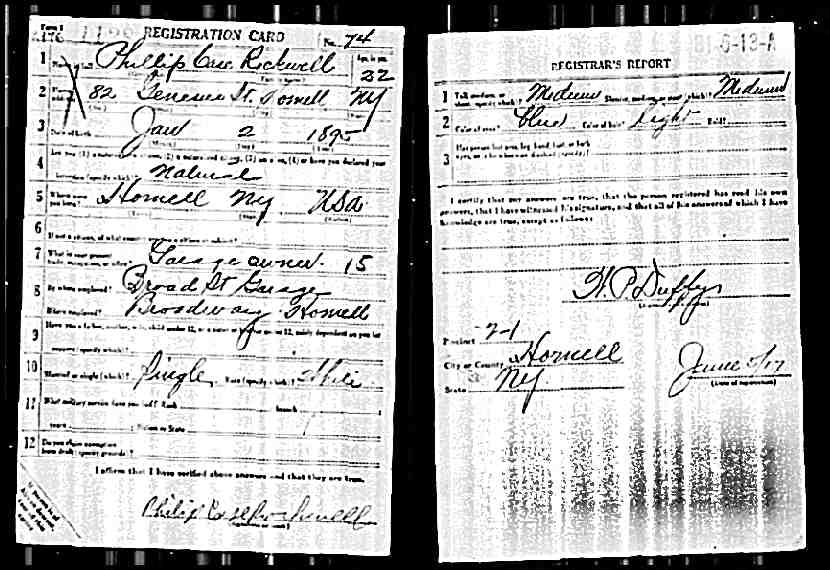 Form 1
REGISTRATION CARD No. 74
1 Phillip Rockwell Age, in yrs. 22
2 82 Genesee St. Hornell NY
3 Date of birth Jan 2 1895
4 Are you (1) a natural-born citizen, (2) a naturalized citizen, (3) an alien, (4) or have you declared your
intention (specify which)? Natural
5 Where were you born? Hornell NY USA
6 If not a citizen, of what country are you a citizen or subject?
7 What is your present trade, occupation, or office? Garage owner 15
8 By whom employed? Broad St Garage
Where employed? Broadway Hornell
9 Have you a father, mother, wife, child under 12, or a sister or brother under 12, solely dependent on you for
support (specify which)?
10 Married or single (which)? Single Race (specify which)? White
11 What military service have you had? Rank branch
years Nation or State
12 Do you claim exemption from draft (specify grounds)?
I affirm that I have verified above answers and that they are true.
Philip Rockwell
REGISTRAR'S REPORT
1 Tall, medium, or short (specify which)? Medium Slender, medium, or stout (which)? Medium
2 Color of eyes? Blue Color of hair? Light Bald?
3 Has person lost arm, leg, hand, foot, or both
eyes, or is he otherwise disabled (specify)?
I certify that my answers are true, that the person registered has read his own
answers, that I have witnessed his signature, and that all of his answers of which I have
knowledge are true, except as follows:
H. P. Duffy
Precinct 2-1
City or County Hornell
State NY
June 5/17
(Date of registration)